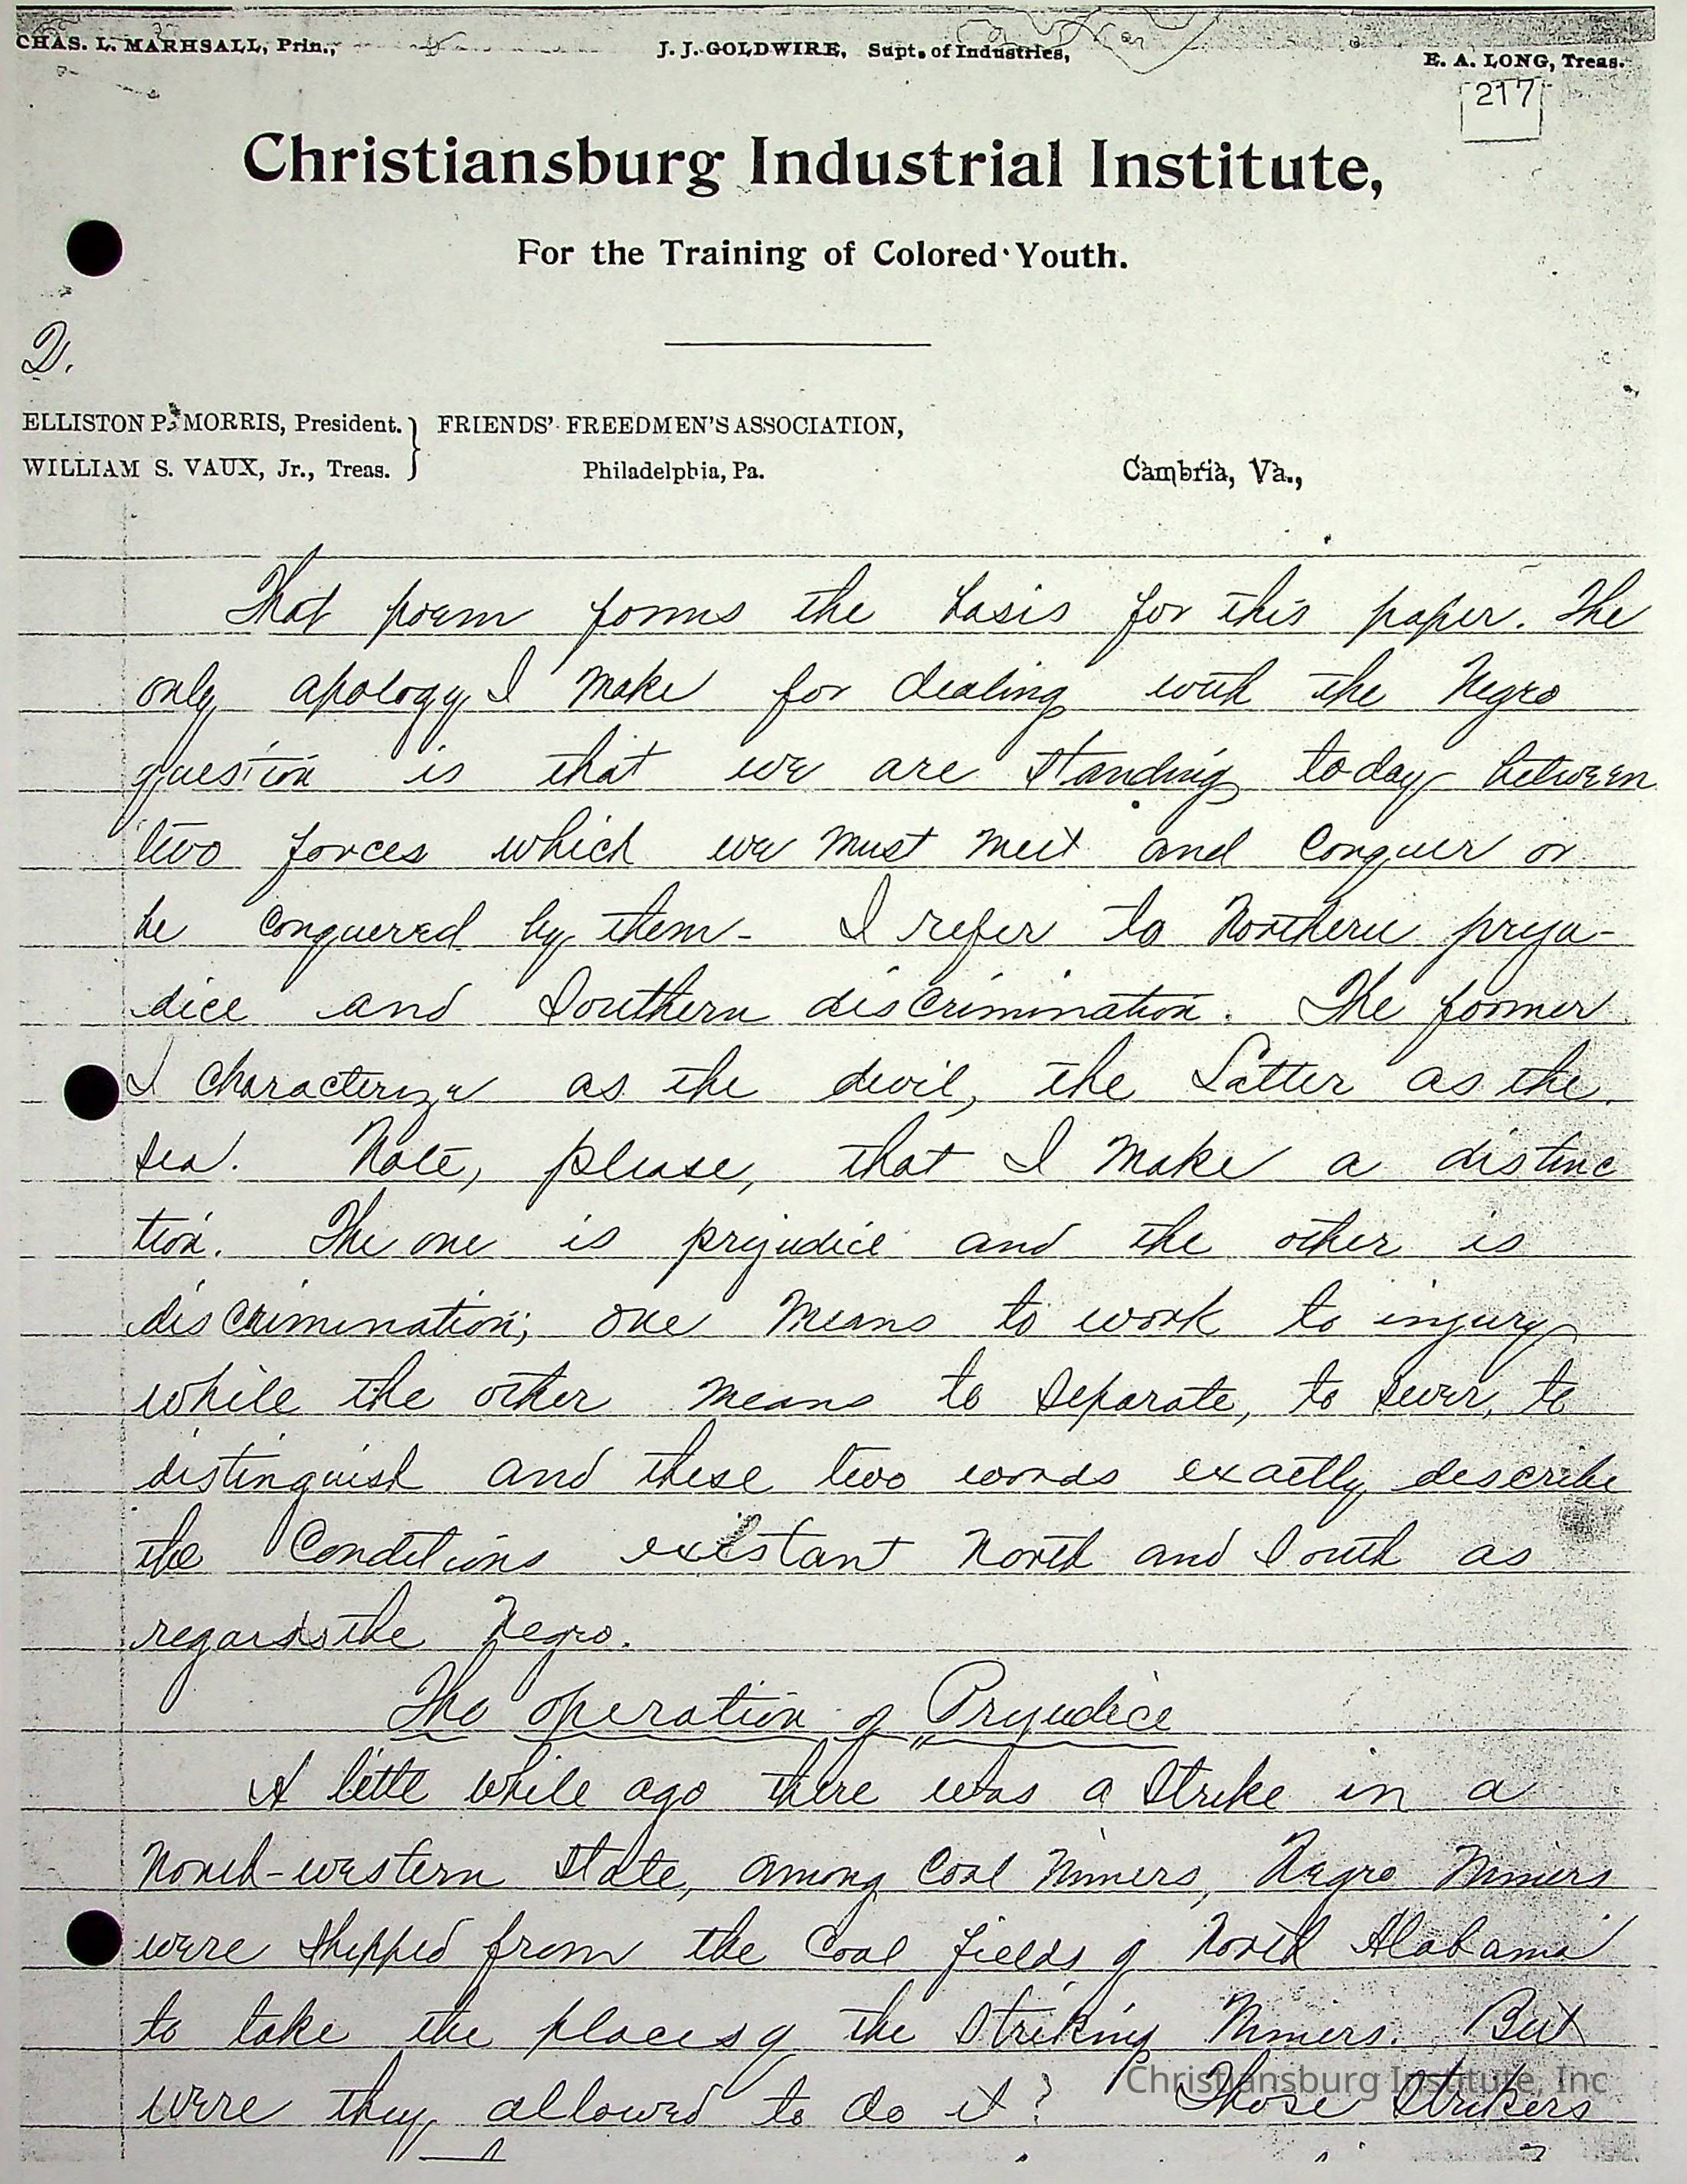 CHAS. L. MARHSALL, Prin.,
J. J. GOLDWIRE, Supt. of Industries,
E. A. LONG, Treas.
217
Christiansburg Industrial Institute,
For the Training of Colored Youth.
2.
ELLISTON P. MORRIS, President. } FRIENDS' FREEDMEN'S ASSOCIATION,
WILLIAM S. VAUX, Jr., Treas. Philadelphia, Pa. Cambria, Va.,
That poem forms the basis for this paper. The
only apology I make for dealing with the Negro
question is that we are standing today between
two forces which we must meet and conquer or
be conquered by them - I refer to Northern preju-
dice and Southern discrimination. The former
I characterize as the devil, the latter as the
sea. Note, please, that I make a distinc
tion. The one is prejudice and the other is
discrimination; one means to work to injury
while the other means to separate, to sever, to
distinguish and these two words exactly describe
the Conditions existant North and South as
regards the Negro.
The operation of Prejudice
A little while ago there was a strike in a
North-western State, among Coal Miners, Negro Miners
were shipped from the Coal fields of North Alabama
to take the places of the striking Miners. But
were they allowed to do it? Those strikers
Christiansburg Institute, Inc